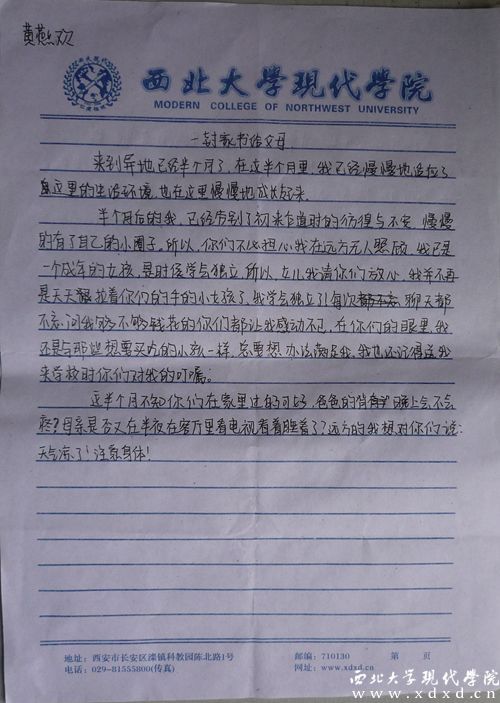 黄燕欢
西北大學現代學院
MODERN COLLEGE OF NORTHWEST UNIVERSITY
一封家书给父母
来到异地已经半个月了,在这半个月里,我已经慢慢地适应了
这里的生活环境,也在这里慢慢地成长起来。
半个月后的我,已经告别了初来乍道时的彷徨与不安,慢慢
的有了自己的小圈子。所以,你们不必担心我在远方无人照顾,我已是
一个成年的女孩,是时候学点独立,所以,女儿我请你们放心,我并不再
是天天拉着你们的手的小女孩了,我学点独立了!每次聊天都
不忘问我够不够钱花的你们都让我感动不已,在你们的眼里,我
还是与那些想要买吃的小孩一样,总要想办法满足我,我也还记得送我
来学校时你们对我的叮嘱。
这半个月不知你们在家里过的可好,爸爸的背晚上会不会
疼?母亲是否又在半夜在客厅里看电视看着睡着了?远方的我想对你们说:
天气凉了!注意身体!
地址:西安市长安区滦镇科教园陈北路1号 邮编:710130 第 页
电话:029-81555800(传真) 网址:www.xdxd.cn
西北大学现代学院
www.xdxd.cn